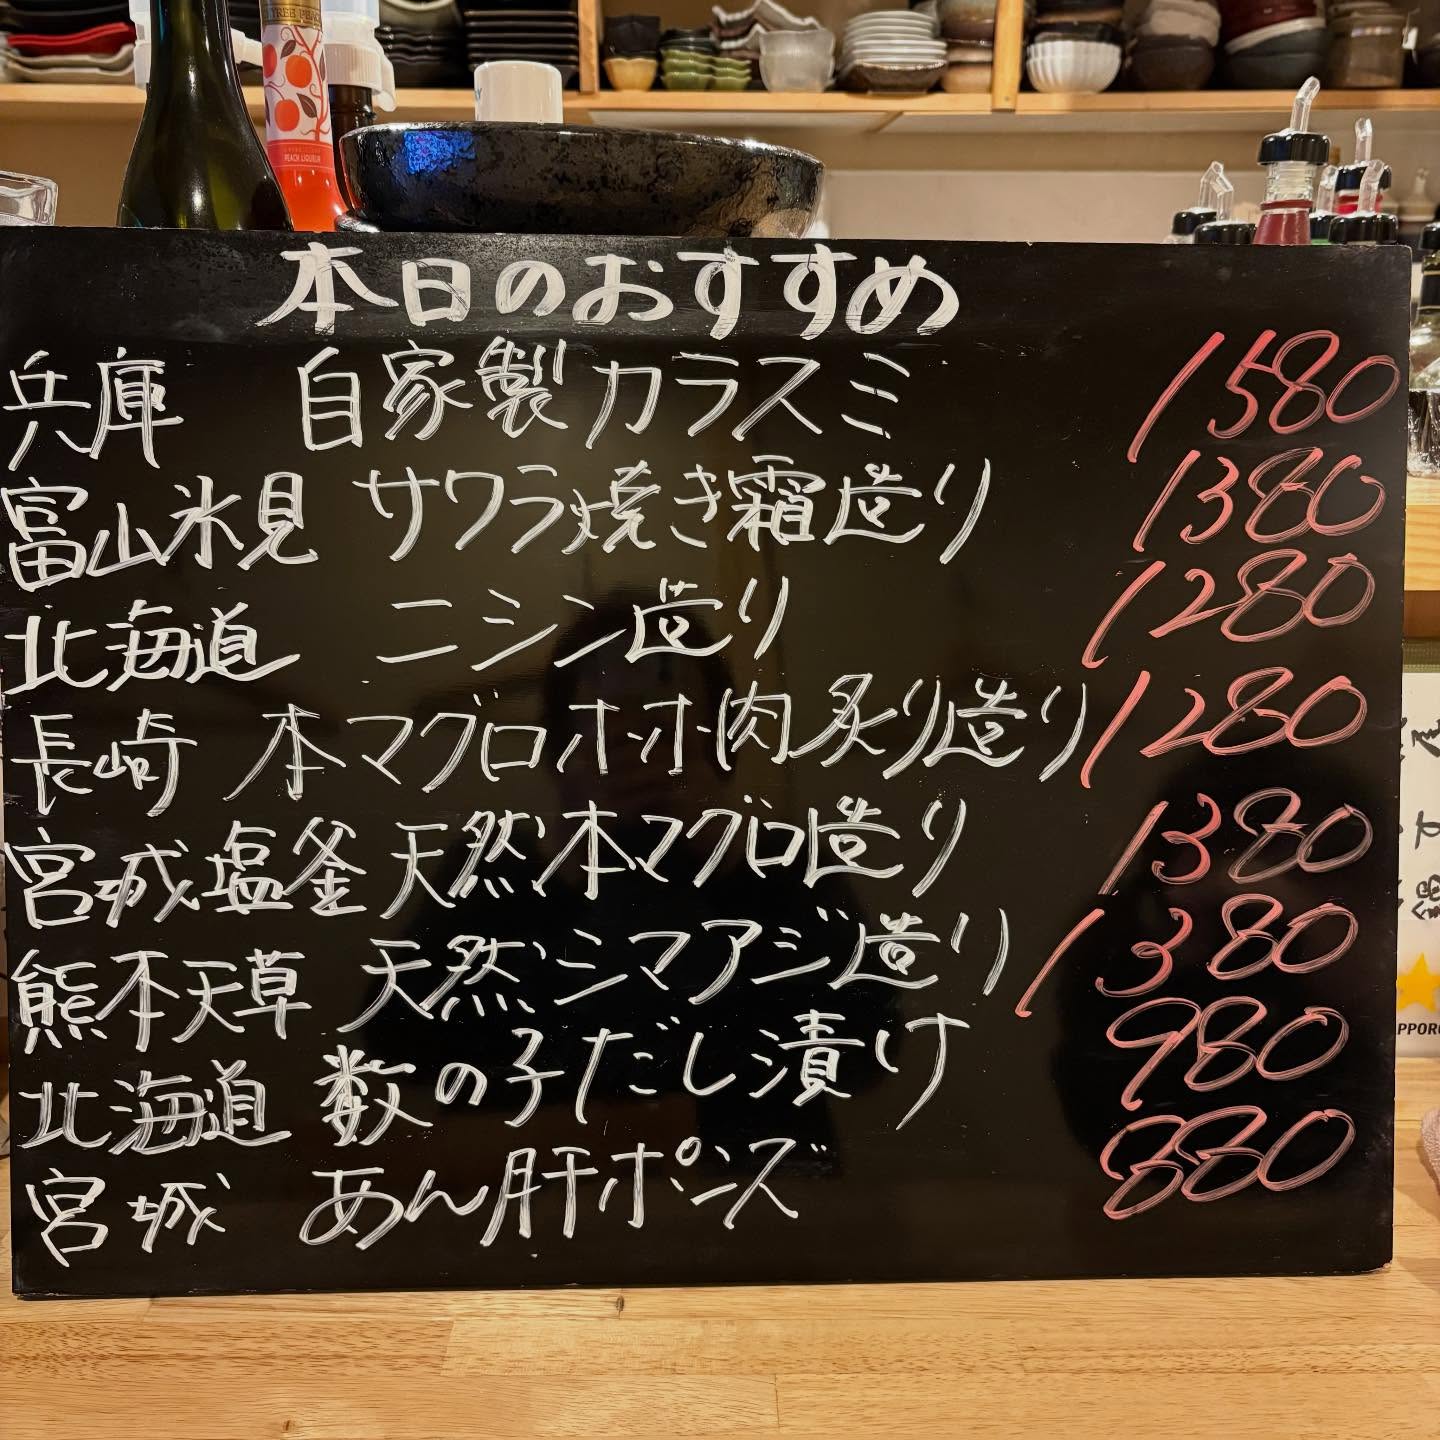 TREE PEACH
PEACH LIQUEUR
本日のおすすめ
兵庫 自家製カラスミ 1580
富山氷見 サワラ焼き霜造り 1380
北海道 ニシン造り 1280
長崎 本マグロホホ肉炙り造り 1280
宮城塩釜 天然本マグロ造り 1380
熊本天草 天然シマアジ造り 1380
北海道 数の子だし漬け 980
宮城 あん肝ポンズ 880